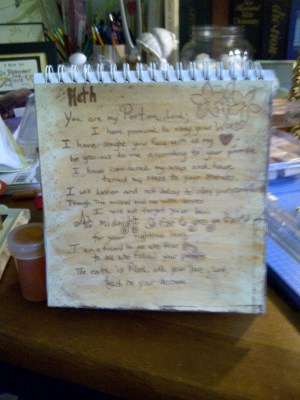 Heth
You are my Portion, Lord;
I have promised to obey your
I have sought your face with all my
be gracious to me according to your promise
I have considered my ways and have
turned my steps to your
I will hasten and not delay to obey your
Though the wicked bind me with
I will not forget your law
At Midnight I rise to
for your righteous laws
I am a friend to all who fear you
to all who follow your precepts
The earth is filled with your love, Lord
teach me your decrees